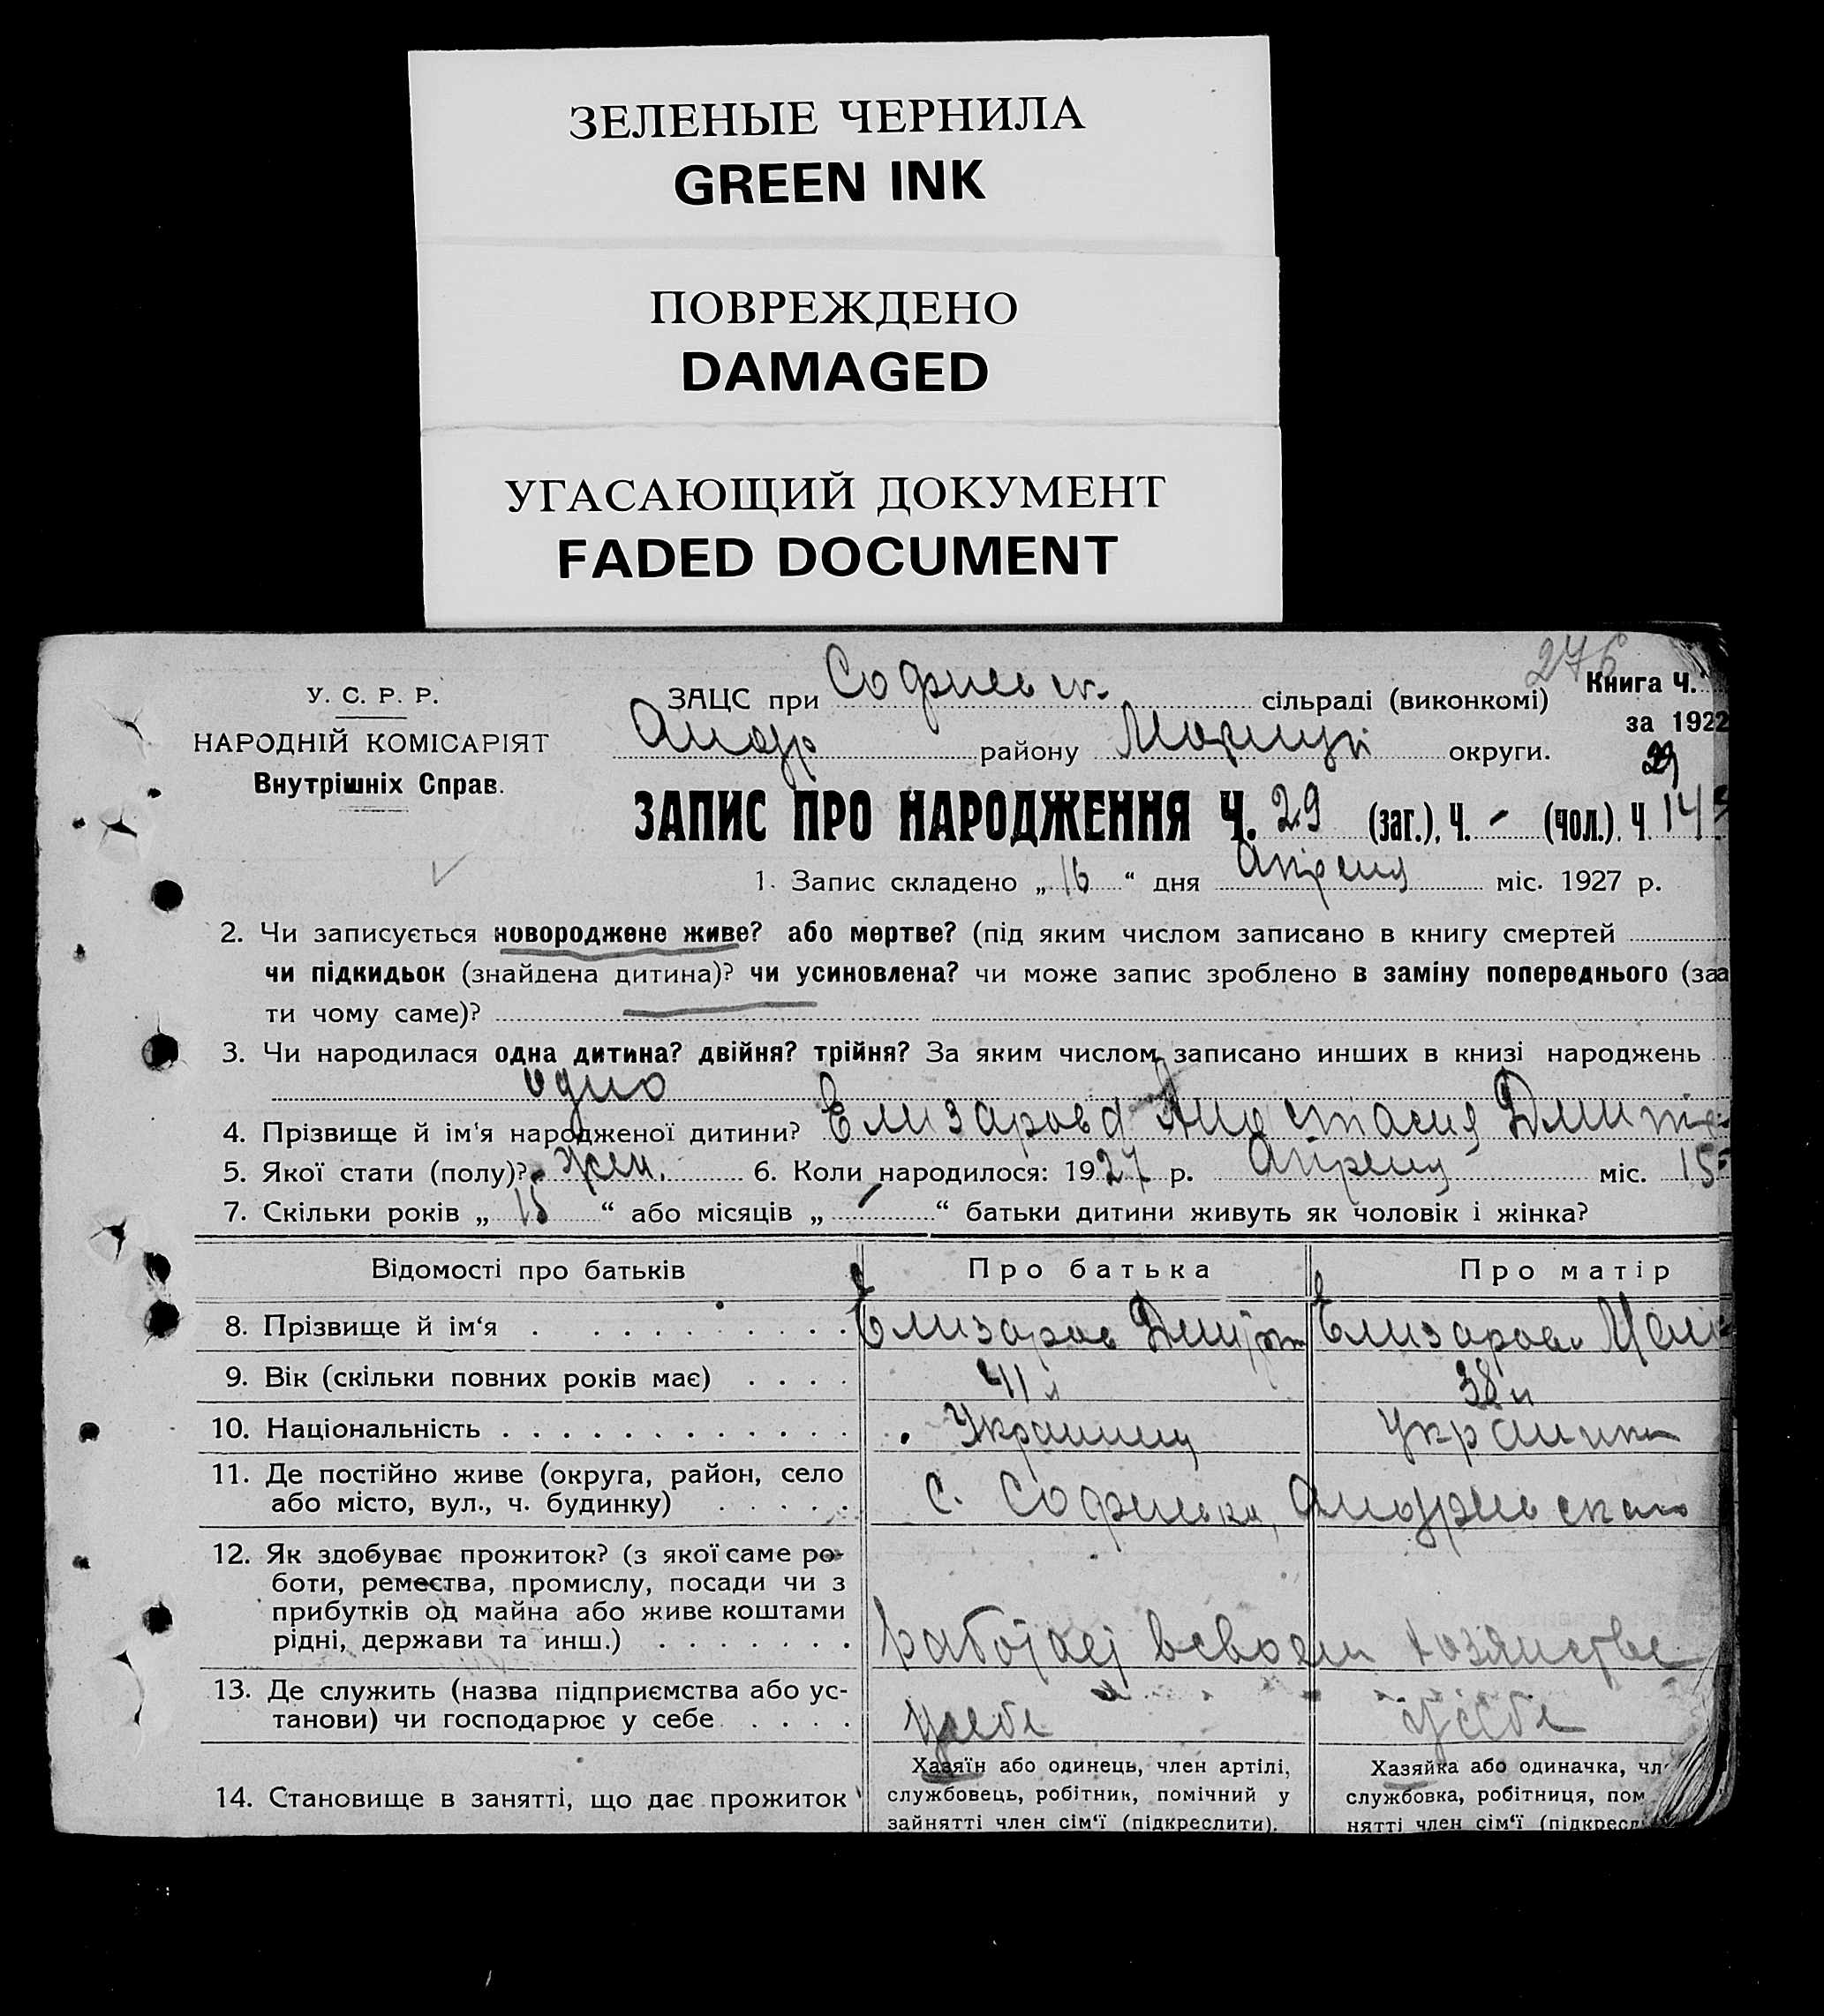 ЗЕЛЕНЫЕ ЧЕРНИЛА
GREEN INK
ПОВРЕЖДЕНО
DAMAGED
УГАСАЮЩИЙ ДОКУМЕНТ
FADED DOCUMENT
276
У. С. Р. Р.
НАРОДНІЙ КОМІСАРІЯТ
Внутрішніх Справ.
Книга Ч.
за 1922
ЗАЦС при Софиевск. сільраді (виконкомі)
Андр району Мариуп округи.
29
ЗАПИС ПРО НАРОДЖЕННЯ Ч. 29 (заг.), Ч. - (чол.). Ч. 14
1. Запис складено „ 16 “ дня Апреля міс. 1927 р.
2. Чи записується новороджене живе? або мертве? (під яким числом записано в книгу смертей
чи підкидьок (знайдена дитина)? чи усиновлена? чи може запис зроблено в заміну попереднього (заа
ти чому саме)?
3. Чи народилася одна дитина? двійня? трійня? За яким числом записано инших в книзі народжень
одно
4. Прізвище й ім‘я народженої дитини? Елизарова Анастасия Дмит
5. Якої стати (полу)? жен. 6. Коли народилося: 1927 р. Апреля міс. 15
7. Скільки років „ 15 “ або місяців „ / “ батьки дитини живуть як чоловік і жінка?
Відомості про батьків Про батька Про матір
8. Прізвище й ім‘я Елизаров Дмит Елизарова
9. Вік (скільки повних років має) 41 л 38 л
10. Національність Украинец Украинк
11. Де постійно живе (округа, район, село
або місто, вул., ч. будинку) С. Софиевка, Андреевского
12. Як здобуває прожиток? (з якої саме ро-
боти, ремества, промислу, посади чи з
прибутків од майна або живе коштами
рідні, держави та инш.) Работает в своем хозяйстве
13. Де служить (назва підприємства або ус-
танови) чи господарює у себе у себе у себе
14. Становище в занятті, що дає прожиток
Хазяїн або одинець, член артілі,
службовець, робітник, помічний у
зайнятті член сім‘ї (підкреслити).
Хазяйка або одиначка, чл
службовка, робітниця, пом
нятті член сім‘ї (підкресл